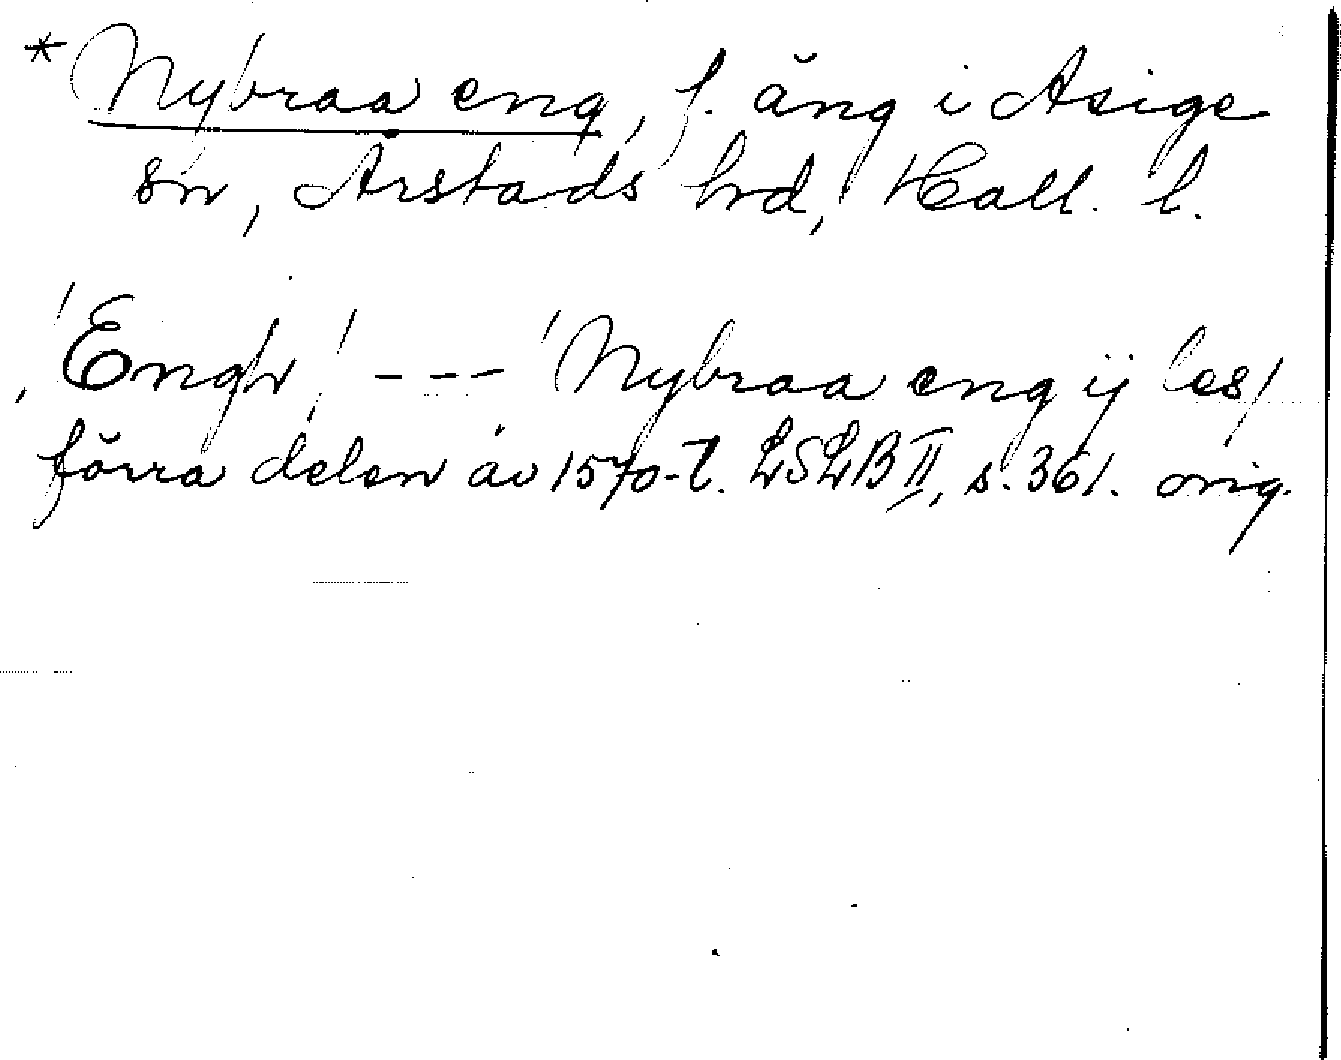 * Nybraa eng, f. äng i Asige
sn, Årstads hrd, Hall. l.
/Engh/ --- /Nybraa eng ij les/
förra delen av 1570-t. LSLB II, s. 361. orig.